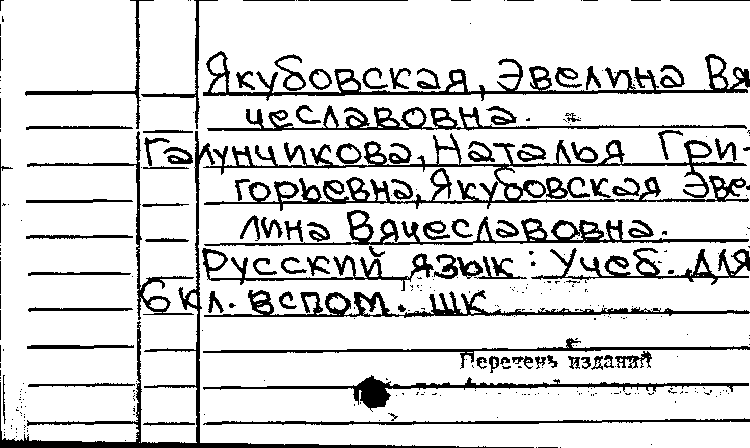 Якубовская, Эвелина Вя
чеславовна.
Галунчикова, Наталья Гри-
горьевна, Якубовская Эве-
лина Вячеславовна.
Русский язык : Учеб. для
6 кл. вспом. шк
Перечень изданий